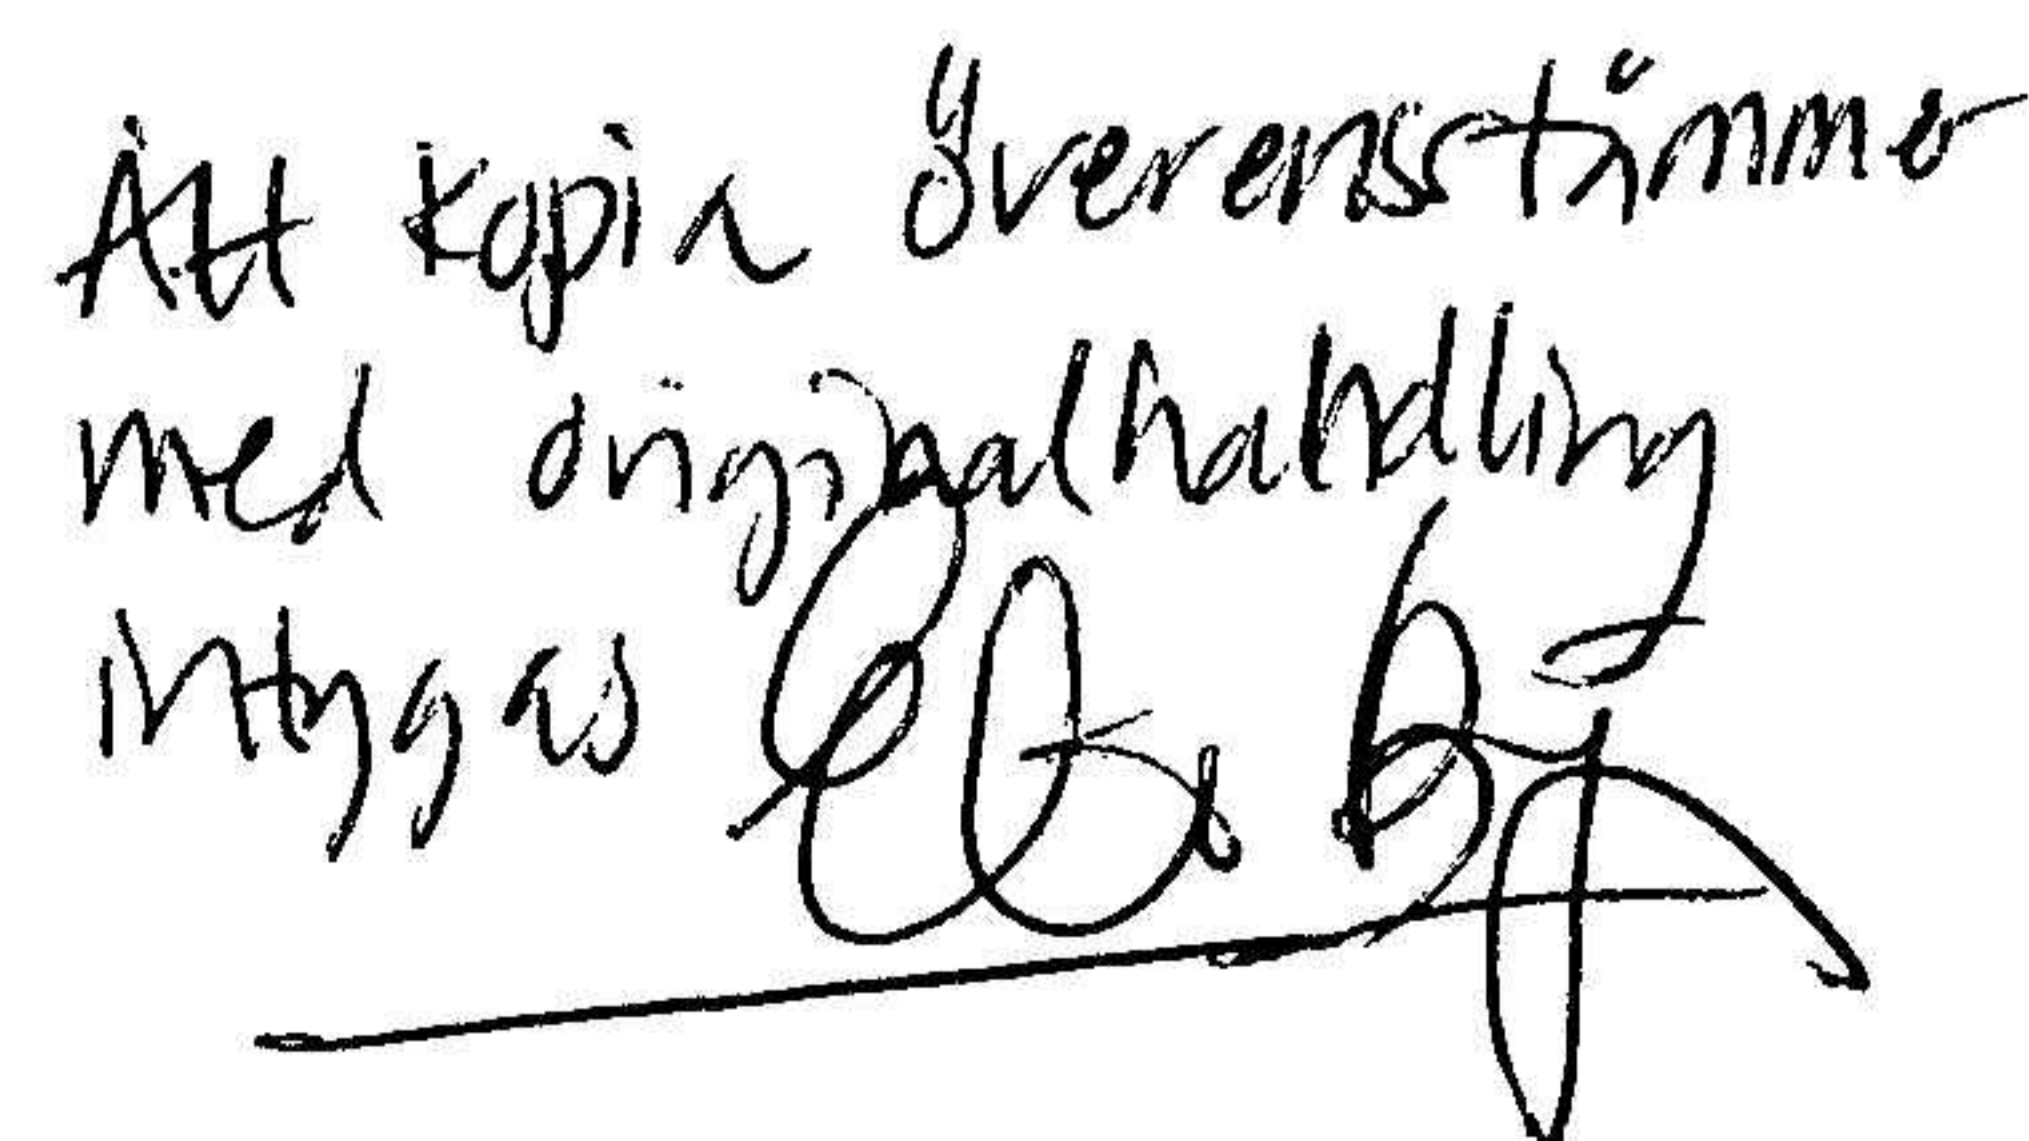 Att kopia överensstämmer
med originalhandling
intygas